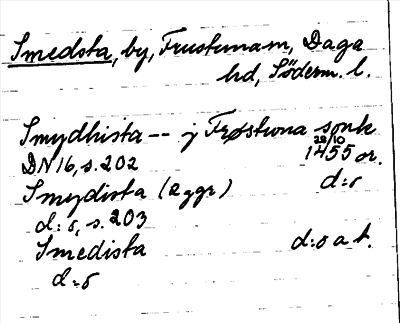 Smedsta, by, Frustunam, Daga
hd, Söderm. l.
Smydhista -- j Frøstwna sonk
28/10
DN 16, s. 202 1455 or.
Smydista (2 ggr) d:o
d:o, s. 203
Smedista d:o a t.
d:o